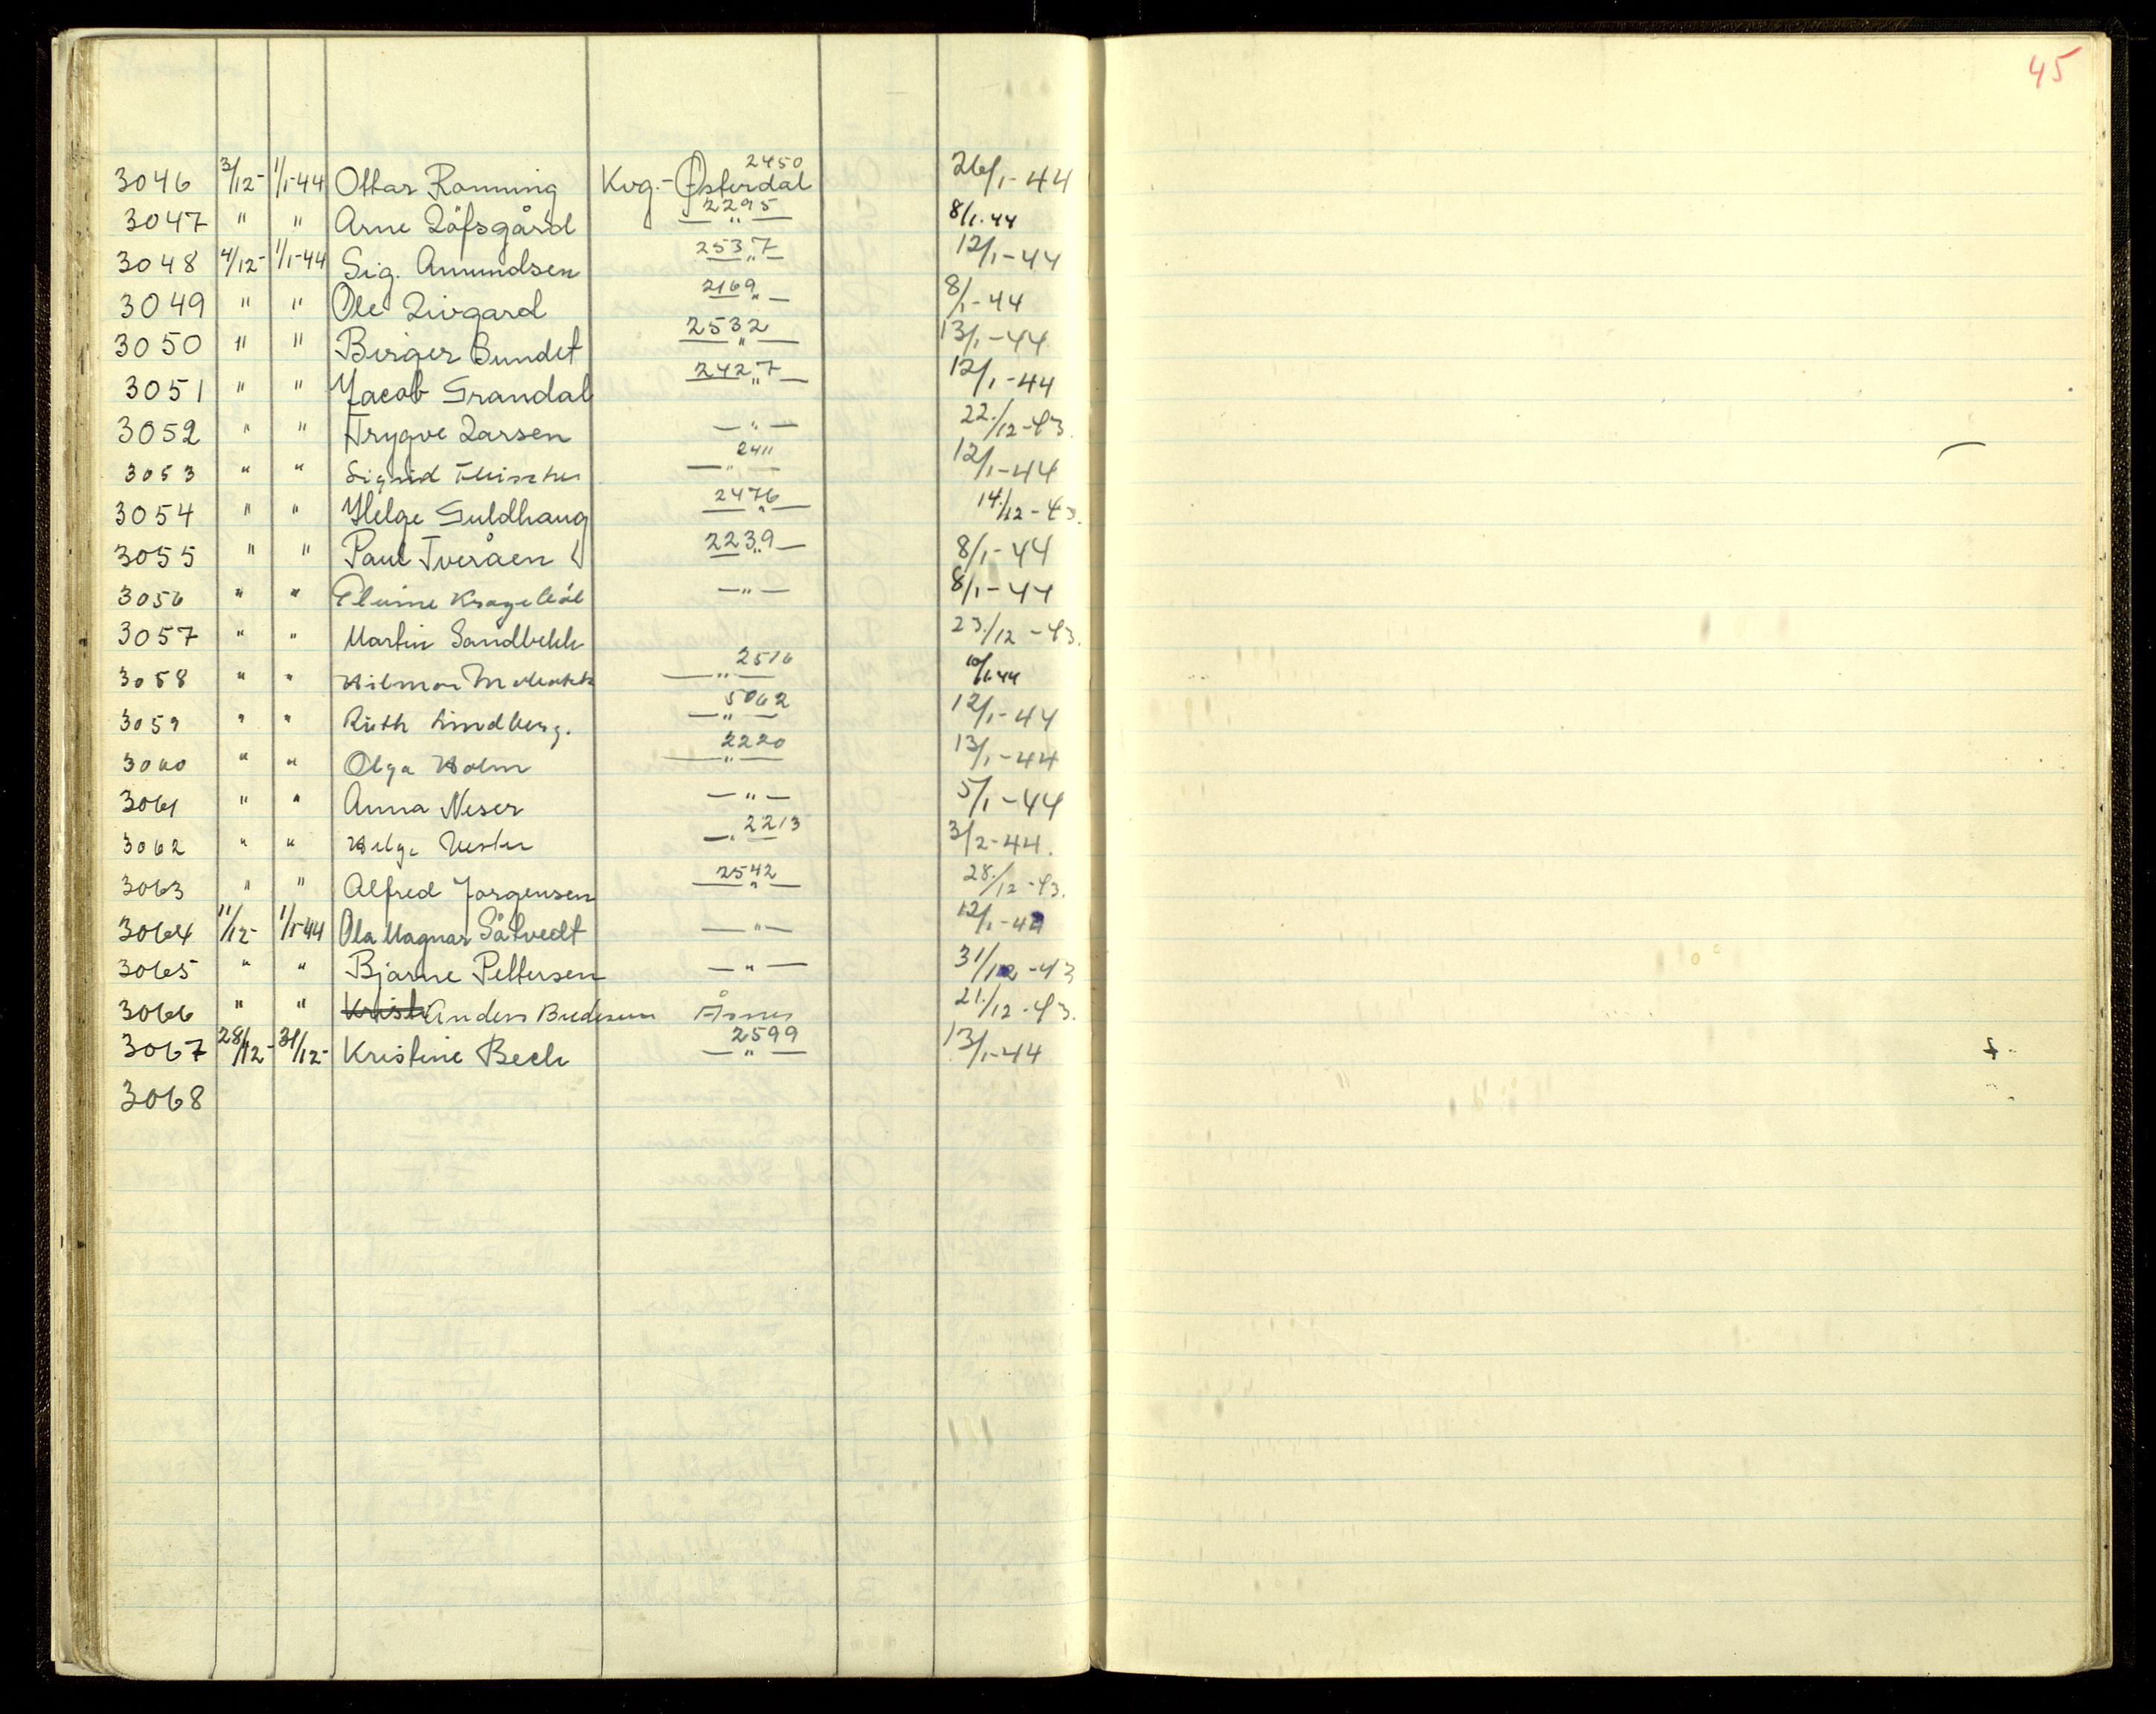 45
3046 3/12- 1/1-44 Ottar Rønning Kvg.-Østerdal 2450 26/1-44
3047 " " Arne Löfsgård 2295 — " — 8/1-44
3048 4/12- 1/1-44 Sig. Amundsen 2537 — " — 12/1-44
3049 " " Ole Livgard 2169 — " — 8/1-44
3050 " " Birger Sundet 2532 — " — 13/1-44
3051 " " Jacob Grandal 2427 — " — 12/1-44
3052 " " Trygve Larsen — " — 22./12-43.
3053 " " Sigrid 2411 — " — 12/1-44
3054 " " Helge Guldhaug 2476 — " — 14./12-43.
3055 " " Paul Tveråen 2239 — " — 8/1-44
3056 " " — " — 8/1-44
3057 " " Martin Sandbekk — " — 23./12-43.
3058 " " Hilmar 2516 — " — 10/1-44
3059 " " Ruth Lindberg. 5062 — " — 12/1-44
3060 " " Olga Holm 2220 — " — 13/1-44
3061 " " Anna Neser — " — 5/1-44
3062 " " Helge 2213 — " — 3/2-44.
3063 " " Alfred Jørgensen 2542 — " — 28./12-43.
3064 11/12- 1/1-44 Ola Magnar Såtvedt — " — 12/1-44
3065 " " Bjarne Pettersen — " — 31/12-43
3066 " " Kristi Anders Bredesen Åsnes 21./12-43.
3067 28/12- 31/12- Kristine Bech 2599 — " — 13/1-44
3068